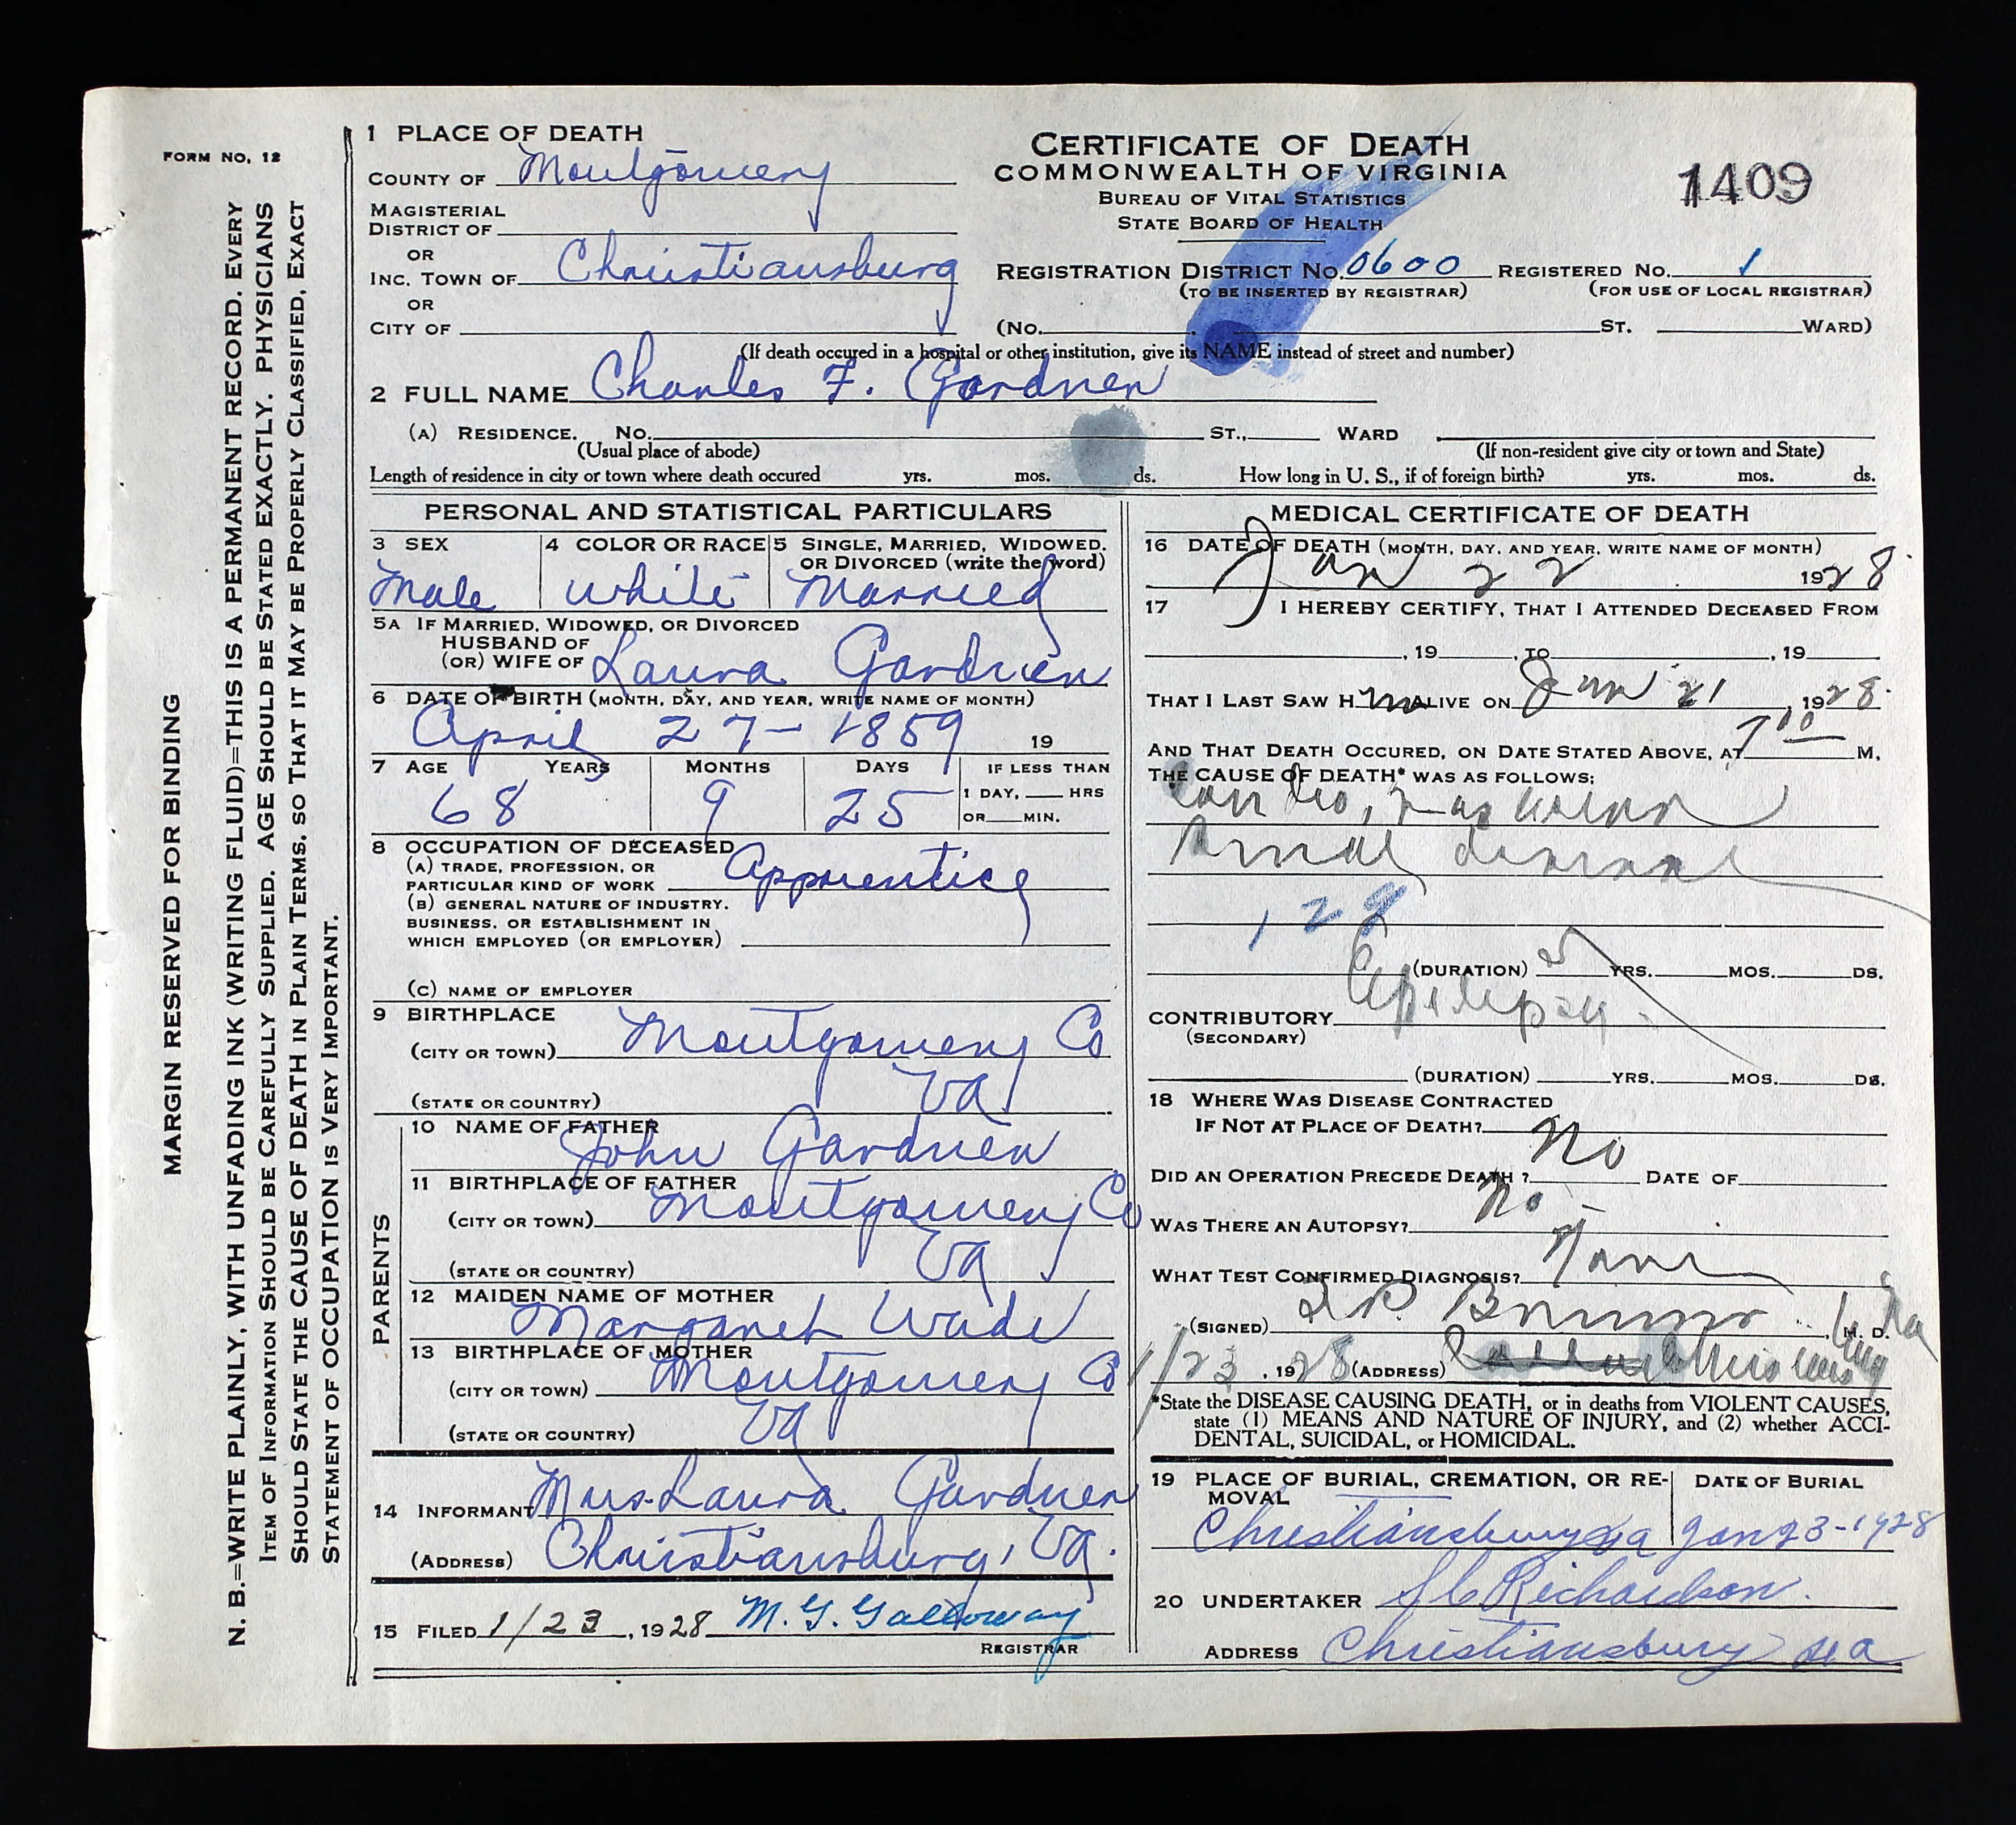 FORM NO. 12
MARGIN RESERVED FOR BINDING
N. B.=WRITE PLAINLY, WITH UNFADING INK (WRITING FLUID)=THIS IS A PERMANENT RECORD. EVERY
ITEM OF INFORMATION SHOULD BE CAREFULLY SUPPLIED. AGE SHOULD BE STATED EXACTLY. PHYSICIANS
SHOULD STATE THE CAUSE OF DEATH IN PLAIN TERMS. SO THAT IT MAY BE PROPERLY CLASSIFIED, EXACT
STATEMENT OF OCCUPATION IS VERY IMPORTANT.
CERTIFICATE OF DEATH
COMMONWEALTH OF VIRGINIA
BUREAU OF VITAL STATISTICS
STATE BOARD OF HEALTH
1409
1 PLACE OF DEATH
COUNTY OF Montgomery
MAGISTERIAL
DISTRICT OF
OR
INC. TOWN OF Christiansburg
OR
CITY OF
REGISTRATION DISTRICT No. 0600 REGISTERED No. 1
(TO BE INSERTED BY REGISTRAR) (FOR USE OF LOCAL REGISTRAR)
(No. ST. WARD)
(If death occured in a hospital or other institution, give its NAME instead of street and number)
2 FULL NAME Charles F. Gardner
(A) RESIDENCE. No. ST., WARD
(Usual place of abode) (If non-resident give city or town and State)
Length of residence in city or town where death occured yrs. mos. ds. How long in U. S., if of foreign birth? yrs. mos. ds.
PERSONAL AND STATISTICAL PARTICULARS
3 SEX 4 COLOR OR RACE 5 SINGLE, MARRIED, WIDOWED,
OR DIVORCED (write the word)
Male white Married
5A IF MARRIED, WIDOWED, OR DIVORCED
HUSBAND OF
(OR) WIFE OF Laura Gardner
6 DATE OF BIRTH (MONTH, DAY, AND YEAR, WRITE NAME OF MONTH)
April 27- 1859 19
7 AGE YEARS MONTHS DAYS IF LESS THAN
68 9 25 1 DAY, HRS
OR MIN.
8 OCCUPATION OF DECEASED
(A) TRADE, PROFESSION, OR
PARTICULAR KIND OF WORK Apprentice
(B) GENERAL NATURE OF INDUSTRY.
BUSINESS, OR ESTABLISHMENT IN
WHICH EMPLOYED (OR EMPLOYER)
(C) NAME OF EMPLOYER
9 BIRTHPLACE
(CITY OR TOWN) Montgomery Co
(STATE OR COUNTRY) Va.
PARENTS
10 NAME OF FATHER
John Gardner
11 BIRTHPLACE OF FATHER
(CITY OR TOWN) Montgomery Co
(STATE OR COUNTRY) Va
12 MAIDEN NAME OF MOTHER
Margaret Wade
13 BIRTHPLACE OF MOTHER
(CITY OR TOWN) Montgomery Co
(STATE OR COUNTRY) Va
14 INFORMANT Mrs. Laura Gardner
(ADDRESS) Christiansburg, Va.
15 FILED 1/23, 1928 M. G. Galloway
REGISTRAR
MEDICAL CERTIFICATE OF DEATH
16 DATE OF DEATH (MONTH, DAY, AND YEAR, WRITE NAME OF MONTH)
Jan 22 1928.
17 I HEREBY CERTIFY, THAT I ATTENDED DECEASED FROM
, 19 , TO , 19
THAT I LAST SAW H m ALIVE ON Jan 21, 1928.
AND THAT DEATH OCCURED, ON DATE STATED ABOVE, AT 7 00 M.
THE CAUSE OF DEATH* WAS AS FOLLOWS:
Cardio, vascular
Renal disease
129
(DURATION) 5 YRS. MOS. DS.
CONTRIBUTORY Epilepsy.
(SECONDARY)
(DURATION) YRS. MOS. DS.
18 WHERE WAS DISEASE CONTRACTED
IF NOT AT PLACE OF DEATH?
DID AN OPERATION PRECEDE DEATH? No DATE OF
WAS THERE AN AUTOPSY? No
WHAT TEST CONFIRMED DIAGNOSIS? None
(SIGNED) M. D.
1/23, 1928 (ADDRESS)
*State the DISEASE CAUSING DEATH, or in deaths from VIOLENT CAUSES,
state (1) MEANS AND NATURE OF INJURY, and (2) whether ACCI-
DENTAL, SUICIDAL, or HOMICIDAL.
19 PLACE OF BURIAL, CREMATION, OR RE- DATE OF BURIAL
MOVAL
Christiansburg Va Jan 23-1928
20 UNDERTAKER Richardson.
ADDRESS Christiansburg Va